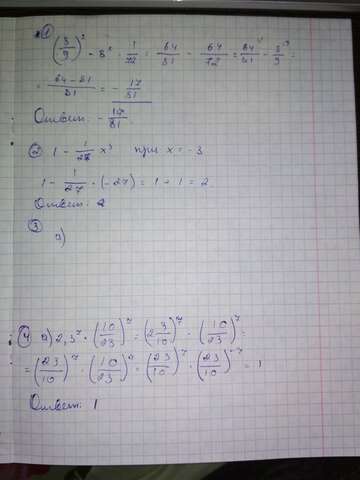 1 (8/9)² - 8² · 1/72 = 64/81 - 64/72 = 64/81 - 8/9 =
= 64-81/81 = - 17/81
Ответ: - 17/81.
2 1 - 1/27 x³ при x = -3
1 - 1/27 · (-27) = 1 + 1 = 2
Ответ: 2
3
а)
4 а) 2,3⁷ · (10/23)⁷ = (2 3/10)⁷ · (10/23)⁷ =
= (23/10)⁷ · (10/23)⁷ = (23/10)⁷ · (23/10)⁻⁷ = 1
Ответ: 1